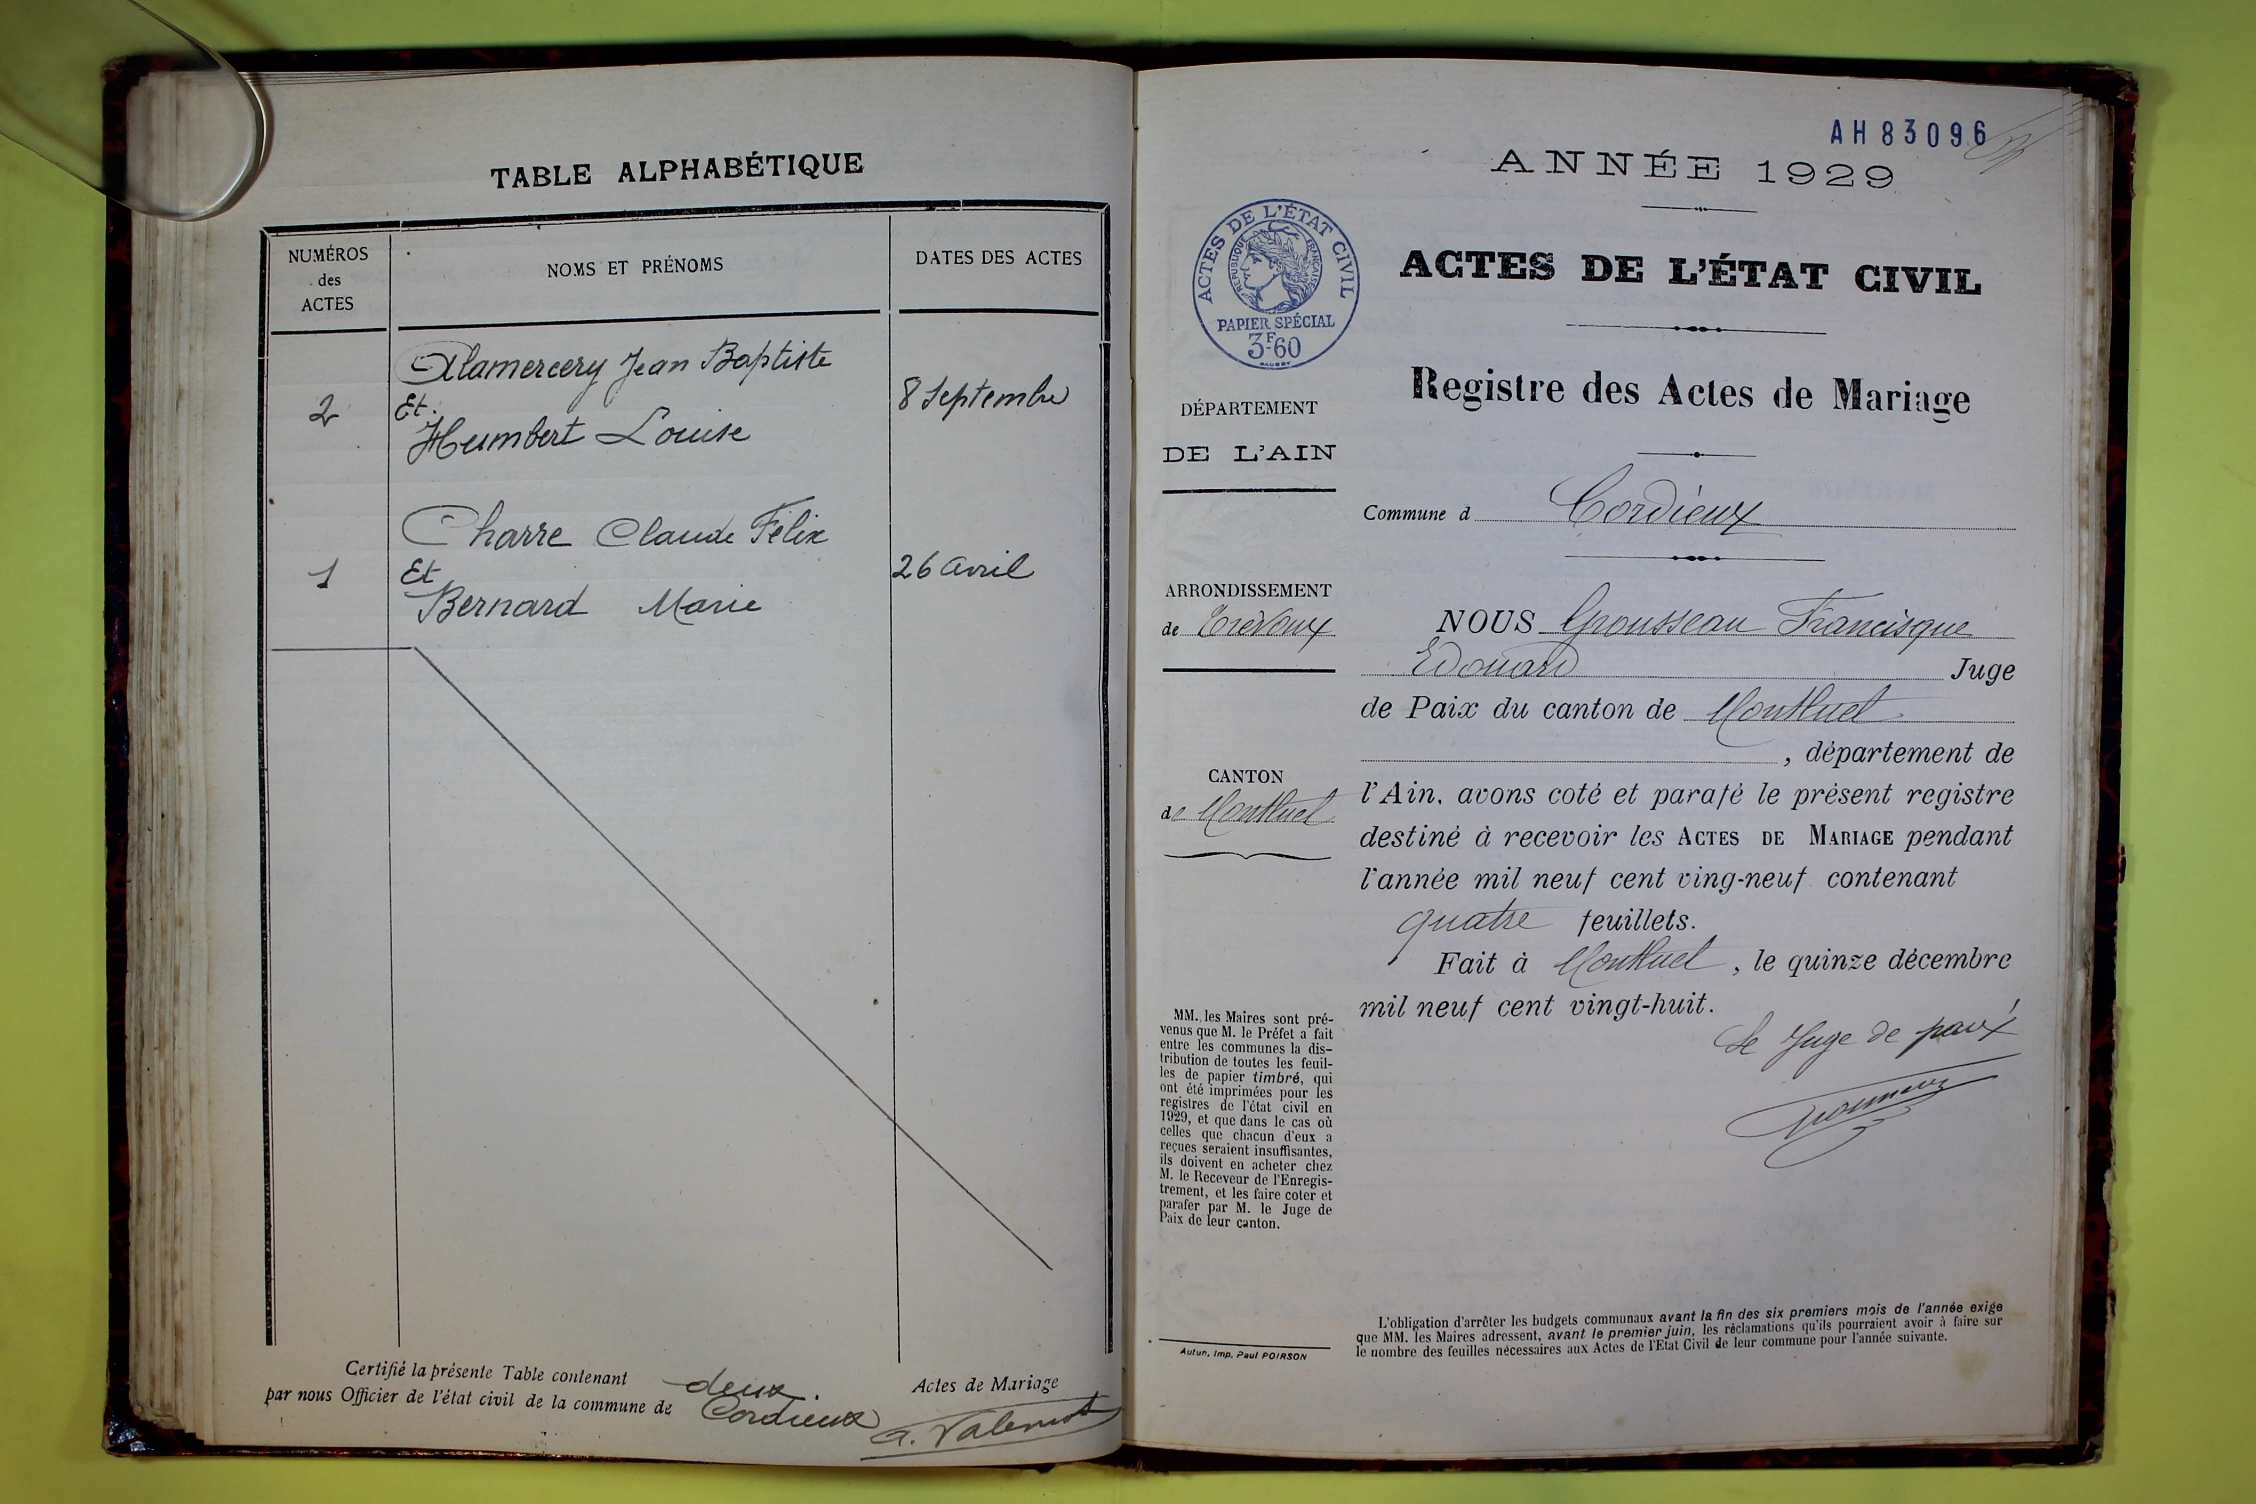 TABLE ALPHABÉTIQUE
NUMÉROS
des
ACTES
NOMS ET PRÉNOMS
DATES DES ACTES
2
Alamercery Jean Baptiste
Et
Humbert Louise
8 Septembre
1
Charre Claude Félix
Et
Bernard Marie
26 avril
Certifié la présente Table contenant deux Actes de Mariage
par nous Officier de l'état civil de la commune de Cordieux
AH83096
ANNÉE 1929
ACTES DE L'ÉTAT CIVIL
RÉPUBLIQUE FRANÇAISE
PAPIER SPÉCIAL
3F60
DÉPARTEMENT
DE L'AIN
ARRONDISSEMENT
de Trévoux
CANTON
de Montluel
MM. les Maires sont pré-
venus que M. le Préfet a fait
entre les communes la dis-
tribution de toutes les feuil-
les de papier timbré, qui
ont été imprimées pour les
registres de l'état civil en
1929, et que dans le cas où
celles que chacun d'eux a
reçues seraient insuffisantes,
ils doivent en acheter chez
M. le Receveur de l'Enregis-
trement, et les faire coter et
parafer par M. le Juge de
Paix de leur canton.
Autun, Imp. Paul POIRSON
ACTES DE L'ÉTAT CIVIL
Registre des Actes de Mariage
Commune d Cordieux
NOUS Grousseau Francisque
Edouard Juge
de Paix du canton de Montluel
, département de
l'Ain, avons coté et parafé le présent registre
destiné à recevoir les ACTES DE MARIAGE pendant
l'année mil neuf cent ving-neuf contenant
quatre feuillets.
Fait à Montluel, le quinze décembre
mil neuf cent vingt-huit.
Le Juge de paix
L'obligation d'arrêter les budgets communaux avant la fin des six premiers mois de l'année exige
que MM. les Maires adressent, avant le premier juin, les réclamations qu'ils pourraient avoir à faire sur
le nombre des feuilles nécessaires aux Actes de l'Etat Civil de leur commune pour l'année suivante.